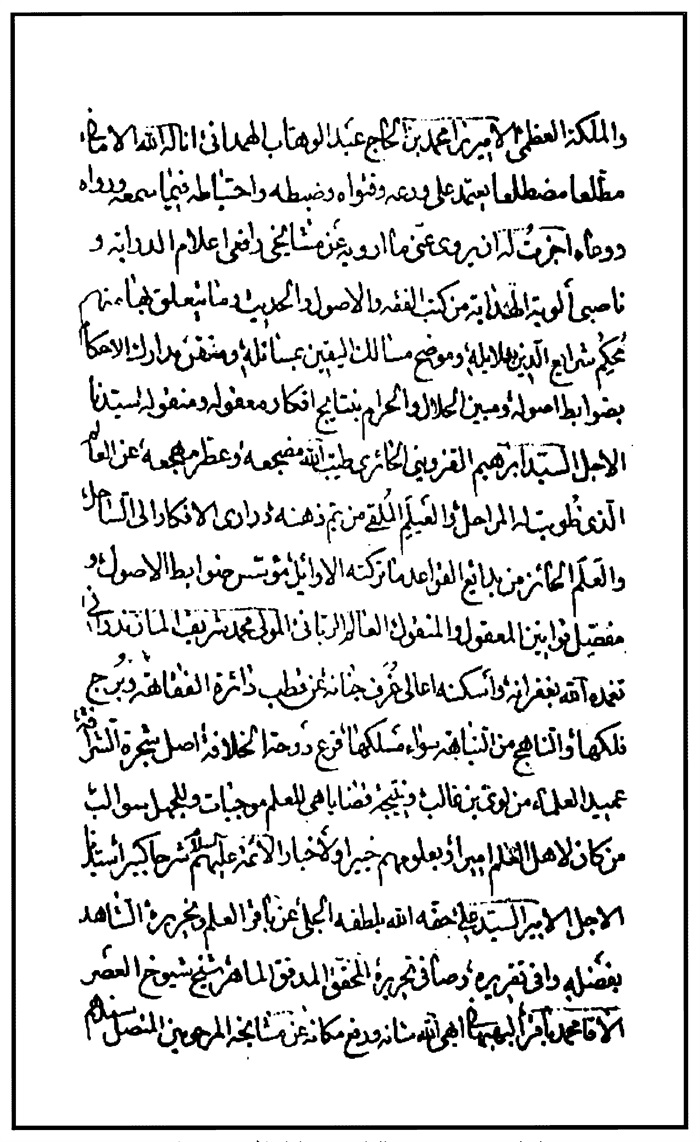 والملكة العظمى الاميرزا محمد بن الحاج عبد الوهاب الهمدانى اناله الله الامانى
مطلعا مضطلعا يعتمد على ورعه وتقواه وضبطه واحتياطه فيما سمعه ورواه
ووعاه اجزت له ان يروى عنى ما ارويه عن مشايخى رافعى اعلام الدراية و
ناصبى ألوية الهداية من كتب الفقه والاصول والحديث وما يتعلق بها منهم
محكم شرايع الدين بدلايله وموضح مسالك اليقين بمسائله ومتقن مدارك الاحكام
بضوابط اصوله ومبين الحلال والحرام بنتايج افكار معقوله ومنقوله سيدنا
الاجل السيد ابرهيم القزوينى الحائرى طيب الله مضجعه وعطر مهجعه عن العالم
الذى طويت له المراحل والعيلم الملقى من يم ذهنه درارى الافكار الى الساحل
والعلم الحائز من بدائع القواعد ما تركته الاوايل مؤسس ضوابط الاصول و
مفصل قوانين المعقول والمنقول العالم الربانى المولى محمد شريف المازندرانى
تغمده الله بغفرانه وأسكنه اعالى غرف جنانه عن قطب دائرة الفقاهة وبرج
فلكها والناهج من النباهة سواء مسلكها فرع دوحة الخلافة اصل شجرة الشرافة
عميد العلماء من لوى بن غالب ونتيجة قضايا هى للعلم موجبات وللجهل سوالب
من كان لاهل العلم اميرا وبعلومهم خبيرا ولأخبار الائمة عليهم السلام شرحا كبيرا سيدنا
الاجل الامير السيد على حفه الله بلطفه الجلى عن باقر العلم ونحريره الشاهد
بفضله وافى تقريره وصافى تحريره المحقق المدقق الماهر شيخ شيوخ العصر
الآقا محمد باقر البهبهانى ابهى الله شانه ورفع مكانه عن مشايخه المرحومين المتصل سندهم